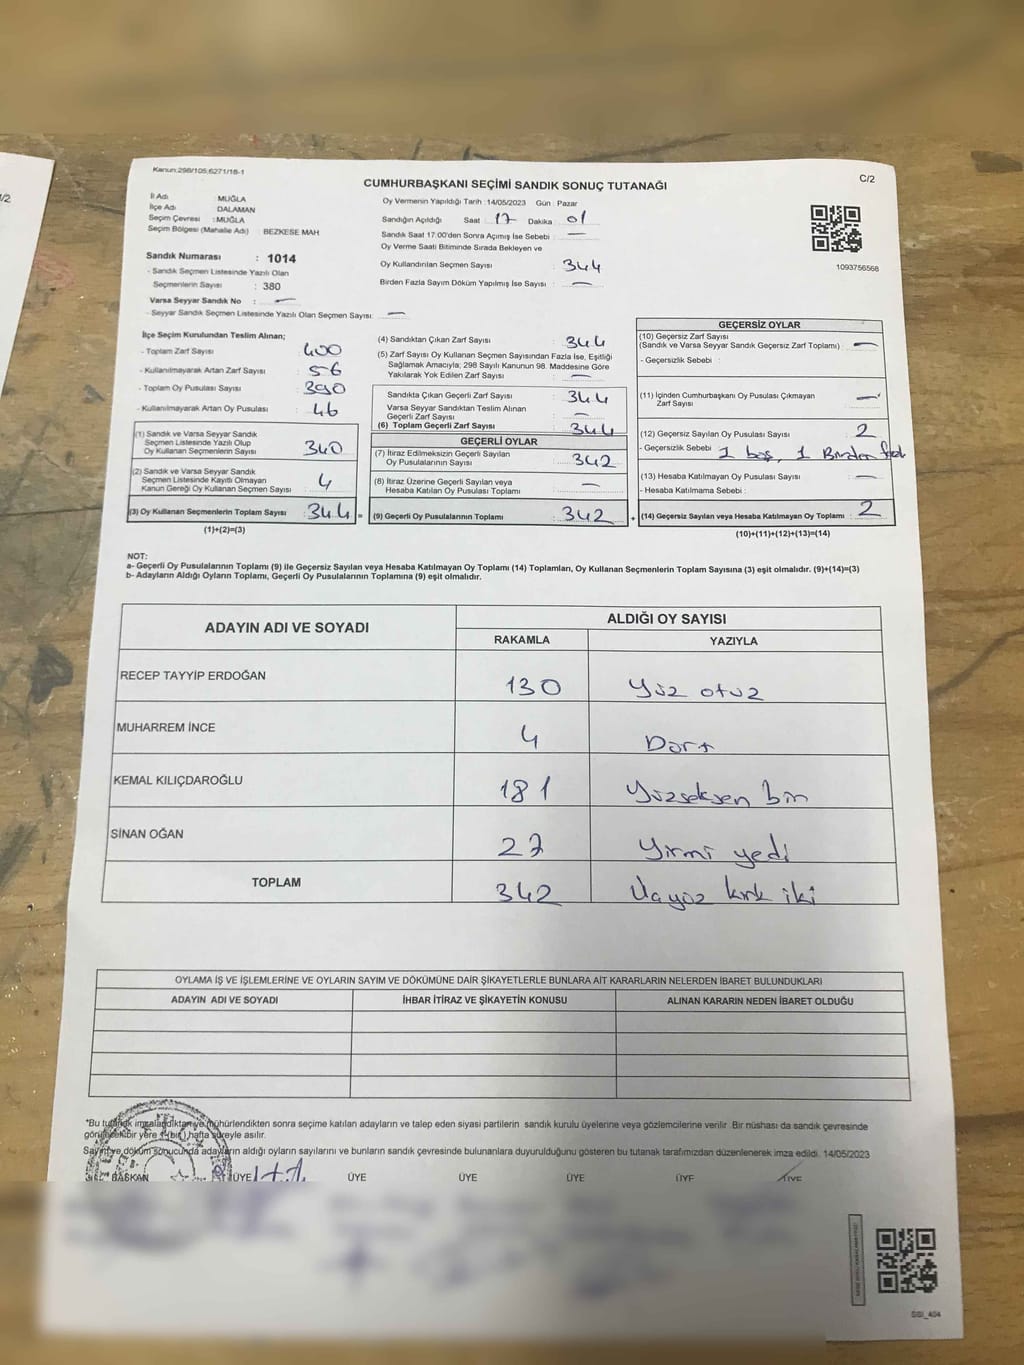 1/2
Kanun:298/105;6271/18-1
C/2
CUMHURBAŞKANI SEÇİMİ SANDIK SONUÇ TUTANAĞI
İl Adı : MUĞLA
İlçe Adı : DALAMAN
Seçim Çevresi : MUĞLA
Seçim Bölgesi (Mahalle Adı) : BEZKESE MAH
Sandık Numarası : 1014
- Sandık Seçmen Listesinde Yazılı Olan
Seçmenlerin Sayısı : 380
Varsa Seyyar Sandık No : —
- Seyyar Sandık Seçmen Listesinde Yazılı Olan Seçmen Sayısı: —
Oy Vermenin Yapıldığı Tarih :14/05/2023 Gün : Pazar
Sandığın Açıldığı Saat : 17 Dakika : 01
Sandık Saat 17:00'den Sonra Açımış İse Sebebi : —
Oy Verme Saati Bitiminde Sırada Bekleyen ve
Oy Kullandırılan Seçmen Sayısı : 344
Birden Fazla Sayım Döküm Yapılmış İse Sayısı : —
1093756568
İlçe Seçim Kurulundan Teslim Alınan;
- Toplam Zarf Sayısı : 400
- Kullanılmayarak Artan Zarf Sayısı : 56
- Toplam Oy Pusulası Sayısı : 390
- Kullanılmayarak Artan Oy Pusulası : 46
(1) Sandık ve Varsa Seyyar Sandık
Seçmen Listesinde Yazılı Olup
Oy Kullanan Seçmenlerin Sayısı : 340
(2) Sandık ve Varsa Seyyar Sandık
Seçmen Listesinde Kayıtlı Olmayan
Kanun Gereği Oy Kullanan Seçmen Sayısı : 4
(3) Oy Kullanan Seçmenlerin Toplam Sayısı : 344 =
(1)+(2)=(3)
(4) Sandıktan Çıkan Zarf Sayısı : 344
(5) Zarf Sayısı Oy Kullanan Seçmen Sayısından Fazla İse, Eşitliği
Sağlamak Amacıyla; 298 Sayılı Kanunun 98. Maddesine Göre
Yakılarak Yok Edilen Zarf Sayısı : —
Sandıkta Çıkan Geçerli Zarf Sayısı : 344
Varsa Seyyar Sandıktan Teslim Alınan
Geçerli Zarf Sayısı : —
(6) Toplam Geçerli Zarf Sayısı : 344
GEÇERLİ OYLAR
(7) İtiraz Edilmeksizin Geçerli Sayılan
Oy Pusulalarının Sayısı : 342
(8) İtiraz Üzerine Geçerli Sayılan veya
Hesaba Katılan Oy Pusulası Toplamı : —
(9) Geçerli Oy Pusulalarının Toplamı : 342 +
GEÇERSİZ OYLAR
(10) Geçersiz Zarf Sayısı
(Sandık ve Varsa Seyyar Sandık Geçersiz Zarf Toplamı) : —
- Geçersizlik Sebebi :
(11) İçinden Cumhurbaşkanı Oy Pusulası Çıkmayan
Zarf Sayısı : —
(12) Geçersiz Sayılan Oy Pusulası Sayısı : 2
- Geçersizlik Sebebi : 1 boş, 1 Birden fazla
(13) Hesaba Katılmayan Oy Pusulası Sayısı : —
- Hesaba Katılmama Sebebi :
(14) Geçersiz Sayılan veya Hesaba Katılmayan Oy Toplamı : 2
(10)+(11)+(12)+(13)=(14)
NOT:
a- Geçerli Oy Pusulalarının Toplamı (9) ile Geçersiz Sayılan veya Hesaba Katılmayan Oy Toplamı (14) Toplamları, Oy Kullanan Seçmenlerin Toplam Sayısına (3) eşit olmalıdır. (9)+(14)=(3)
b- Adayların Aldığı Oyların Toplamı, Geçerli Oy Pusulalarının Toplamına (9) eşit olmalıdır.
ADAYIN ADI VE SOYADI ALDIĞI OY SAYISI
RAKAMLA YAZIYLA
RECEP TAYYİP ERDOĞAN 130 Yüz otuz
MUHARREM İNCE 4 Dört
KEMAL KILIÇDAROĞLU 181 Yüzseksen bir
SİNAN OĞAN 27 Yirmi yedi
TOPLAM 342 Üçyüz kırk iki
OYLAMA İŞ VE İŞLEMLERİNE VE OYLARIN SAYIM VE DÖKÜMÜNE DAİR ŞİKAYETLERLE BUNLARA AİT KARARLARIN NELERDEN İBARET BULUNDUKLARI
ADAYIN ADI VE SOYADI İHBAR İTİRAZ VE ŞİKAYETİN KONUSU ALINAN KARARIN NEDEN İBARET OLDUĞU
*Bu tutanak imzalandıktan ve mühürlendikten sonra seçime katılan adayların ve talep eden siyasi partilerin sandık kurulu üyelerine veya gözlemcilerine verilir. Bir nüshası da sandık çevresinde
görünecek bir yere 1 (bir) hafta süreyle asılır.
Sayım ve döküm sonucunda adayların aldığı oyların sayılarını ve bunların sandık çevresinde bulunanlara duyurulduğunu gösteren bu tutanak tarafımızdan düzenlenerek imza edildi. 14/05/2023
BAŞKAN ÜYE ÜYE ÜYE ÜYE ÜYE ÜYE
SSI_404